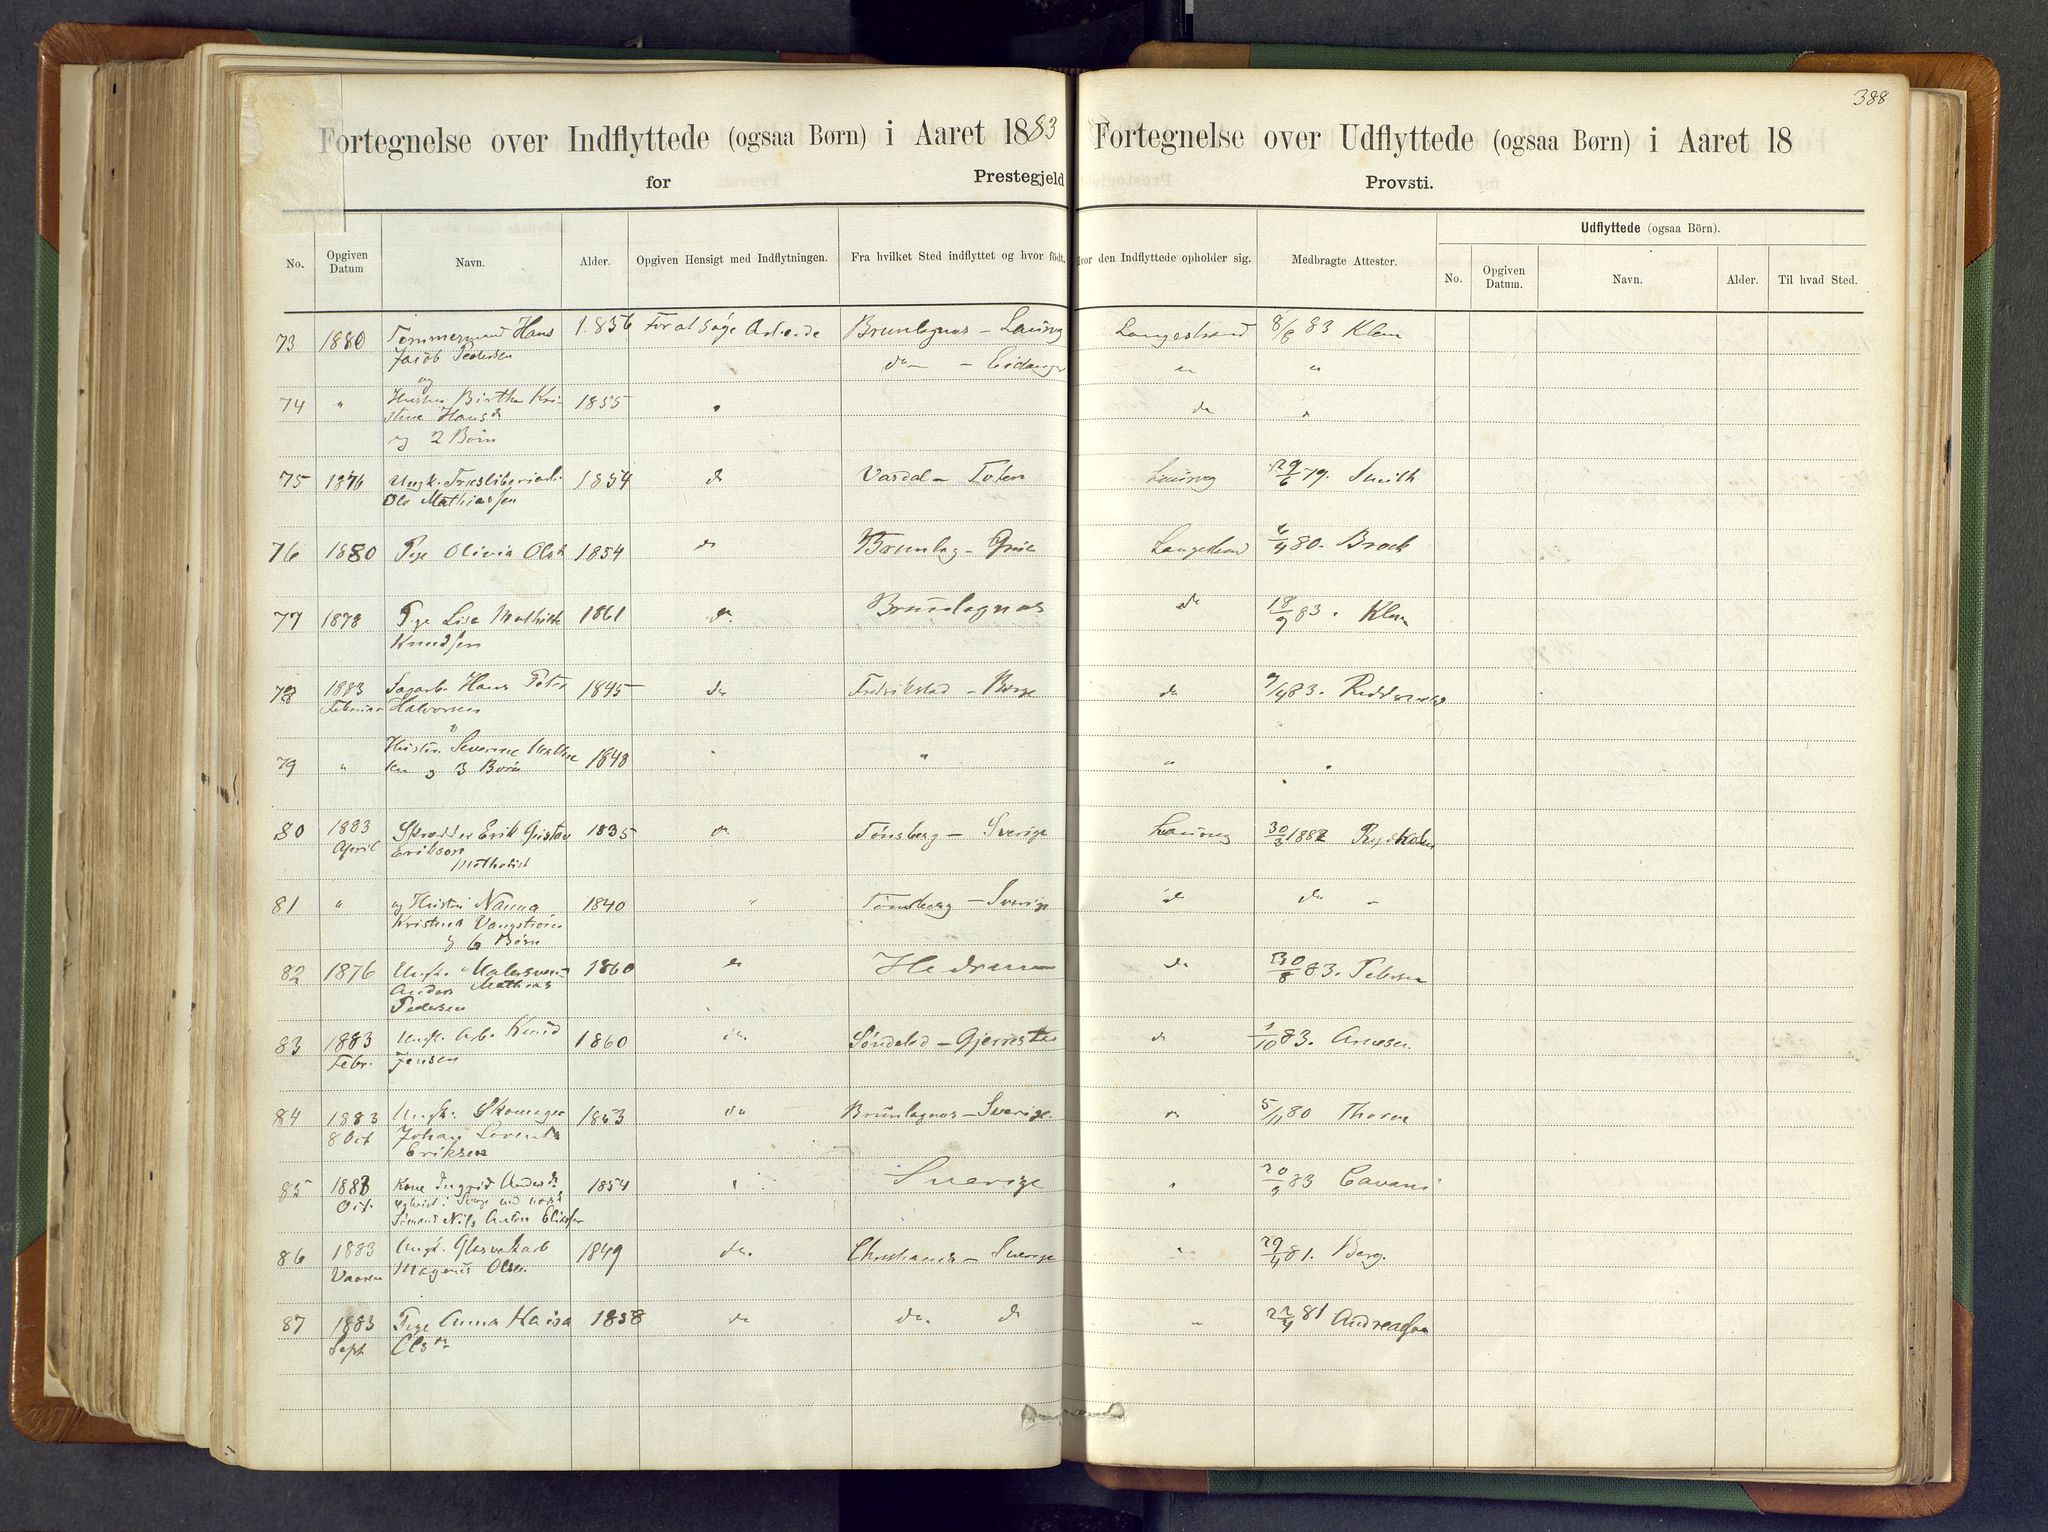 388
Fortegnelse over Indflyttede (ogsaa Børn) i Aaret 1883 Fortegnelse over Udflyttede (ogsaa Børn) i Aaret 18
for Prestegjeld Provsti.
Udflyttede (ogsaa Börn).
No. Opgiven Datum Navn. Alder. Opgiven Hensigt med Indflytningen. Fra hvilket Sted indflyttet og hvor födt. Hvor den Indflyttede opholder sig. Medbragte Attester. No. Opgiven Datum. Navn. Alder. Til hvad Sted.
73 1880 Tømmermand Hans 1856 For at søge Arbeide Brunlagnas – Laurvig Langestrand 8/8 83 Klem
Jacob Pedersen do – Eidanger " "
og
74 " Hustru Birthe Kri 1855 " do "
stine Hansd
og 2 Børn
75 1876 Ungk. Træsliberiarb. 1854 do Vardal – Toten Laurvig 29/6 79. Smith
Ole Mathiassen
76 1880 Pige Olivia Olsd 1854 do Brunlag – Langestrand 6/4 80. Brock
77 1878 Pige Lise Mathilde 1861 do. Brunlagnas do 18/9 83. Klem
Knudsen
78 1883 Sagarb. Hans Peter 1845 do Fredrikstad – Borge do 9/4 83.
Februar Halvorsen
79 " Hustru Severine 1848 " " " "
og 3 Børn
80 1883 Skrædder Erik Gustav 1835 do Tønsberg – Sverige Laurvig 30/3 1882
April Erikson
Methodist
81 " og Hustru Nanna 1840 " Tønsberg – Sverige do do –
Kristina Vangstrøm
og 6 Børn
82 1876 Ungk. Malersvend 1860 do Hedrum do 30/8 83. Petersen
Anders Mathias
Pedersen
83 1883 Ungk. Arb. Knud 1860 do Søndeled – Gjerrestad do 1/10 83. Arnesen.
Febr. Jensen
84 1883 Ungk. Skomager 1863 do Brunlagnas – Sverige. do 5/11 80 Thorne
8 Oct Johan Lorents
Eriksen
85 1883 Kone Ingrid Andersdr 1854 " Sverige " 20/9 83
Oct. i Sverge med
Sömand Nils Anton
86 1883 Ungk. Glasværkarb 1849 do. Christiania – Sverige " 29/4 81. Berg.
Vaaren Magnus Olsen
87 1883 Pige Anna Kaisa 1858 do do. do " 22/4 81 Andreassen
Sept Olsdr